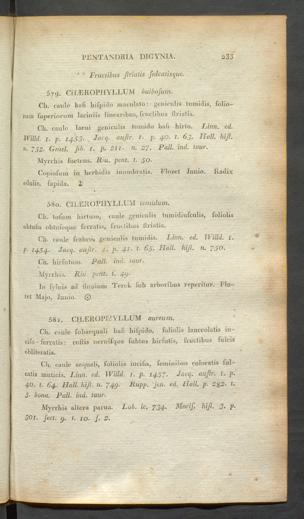 PENTANDRIA DIGYNIA. 233
** Fructibus striatis sulcatisque.
579. CHÆROPHYLLUM bulbosum.
Ch. caule basi hispido maculato: geniculis tumidis, folio-
rum superiorum laciniis linearibus, fructibus striatis.
Ch. caule laevi geniculis tumido basi hirto. Linn. ed.
Willd. 1. p. 1453. Jacq. austr. 1. p. 40. t. 63. Hall. hist.
n. 752. Gmel. sib. 1. p. 211. n. 27. Pall. ind. taur.
Myrrhis foetens. Riv. pent. t. 50.
Copiosum in herbidis inundatis. Floret Junio. Radix
edulis, sapida. ♂
580. CHÆROPHYLLUM temulum.
Ch. totum hirtum, caule geniculis tumidiusculis, foliolis
obtusis obtuseque serratis, fructibus striatis.
Ch. caule scabro; geniculis tumidis. Linn. ed. Willd. 1.
p. 1454. Jacq. austr. 1. p. 41. t. 65. Hall. hist. n. 750.
Ch. hirsutum. Pall. ind. taur.
Myrrhis. Riv. pent. t. 49.
In sylvis ad fluvium Terek sub arboribus reperitur. Flo-
ret Majo, Junio. ☉
581. CHÆROPHYLLUM aureum.
Ch. caule subaequali basi hispido, foliolis lanceolatis in-
ciso-serratis: costis nervisque subtus hirsutis, fructibus sulcis
obliteratis.
Ch. caule aequali, foliolis incisis, seminibus coloratis sul-
catis muticis. Linn. ed. Willd. 1. p. 1457. Jacq. austr. 1. p.
40. t. 64. Hall. hist. n. 749. Rupp. jen. ed. Hall. p. 282. t.
5. bona. Pall. ind. taur.
Myrrhis altera parva. Lob. ic. 734. Moris. hist. 3. p.
301. sect. 9. t. 10. f. 2.